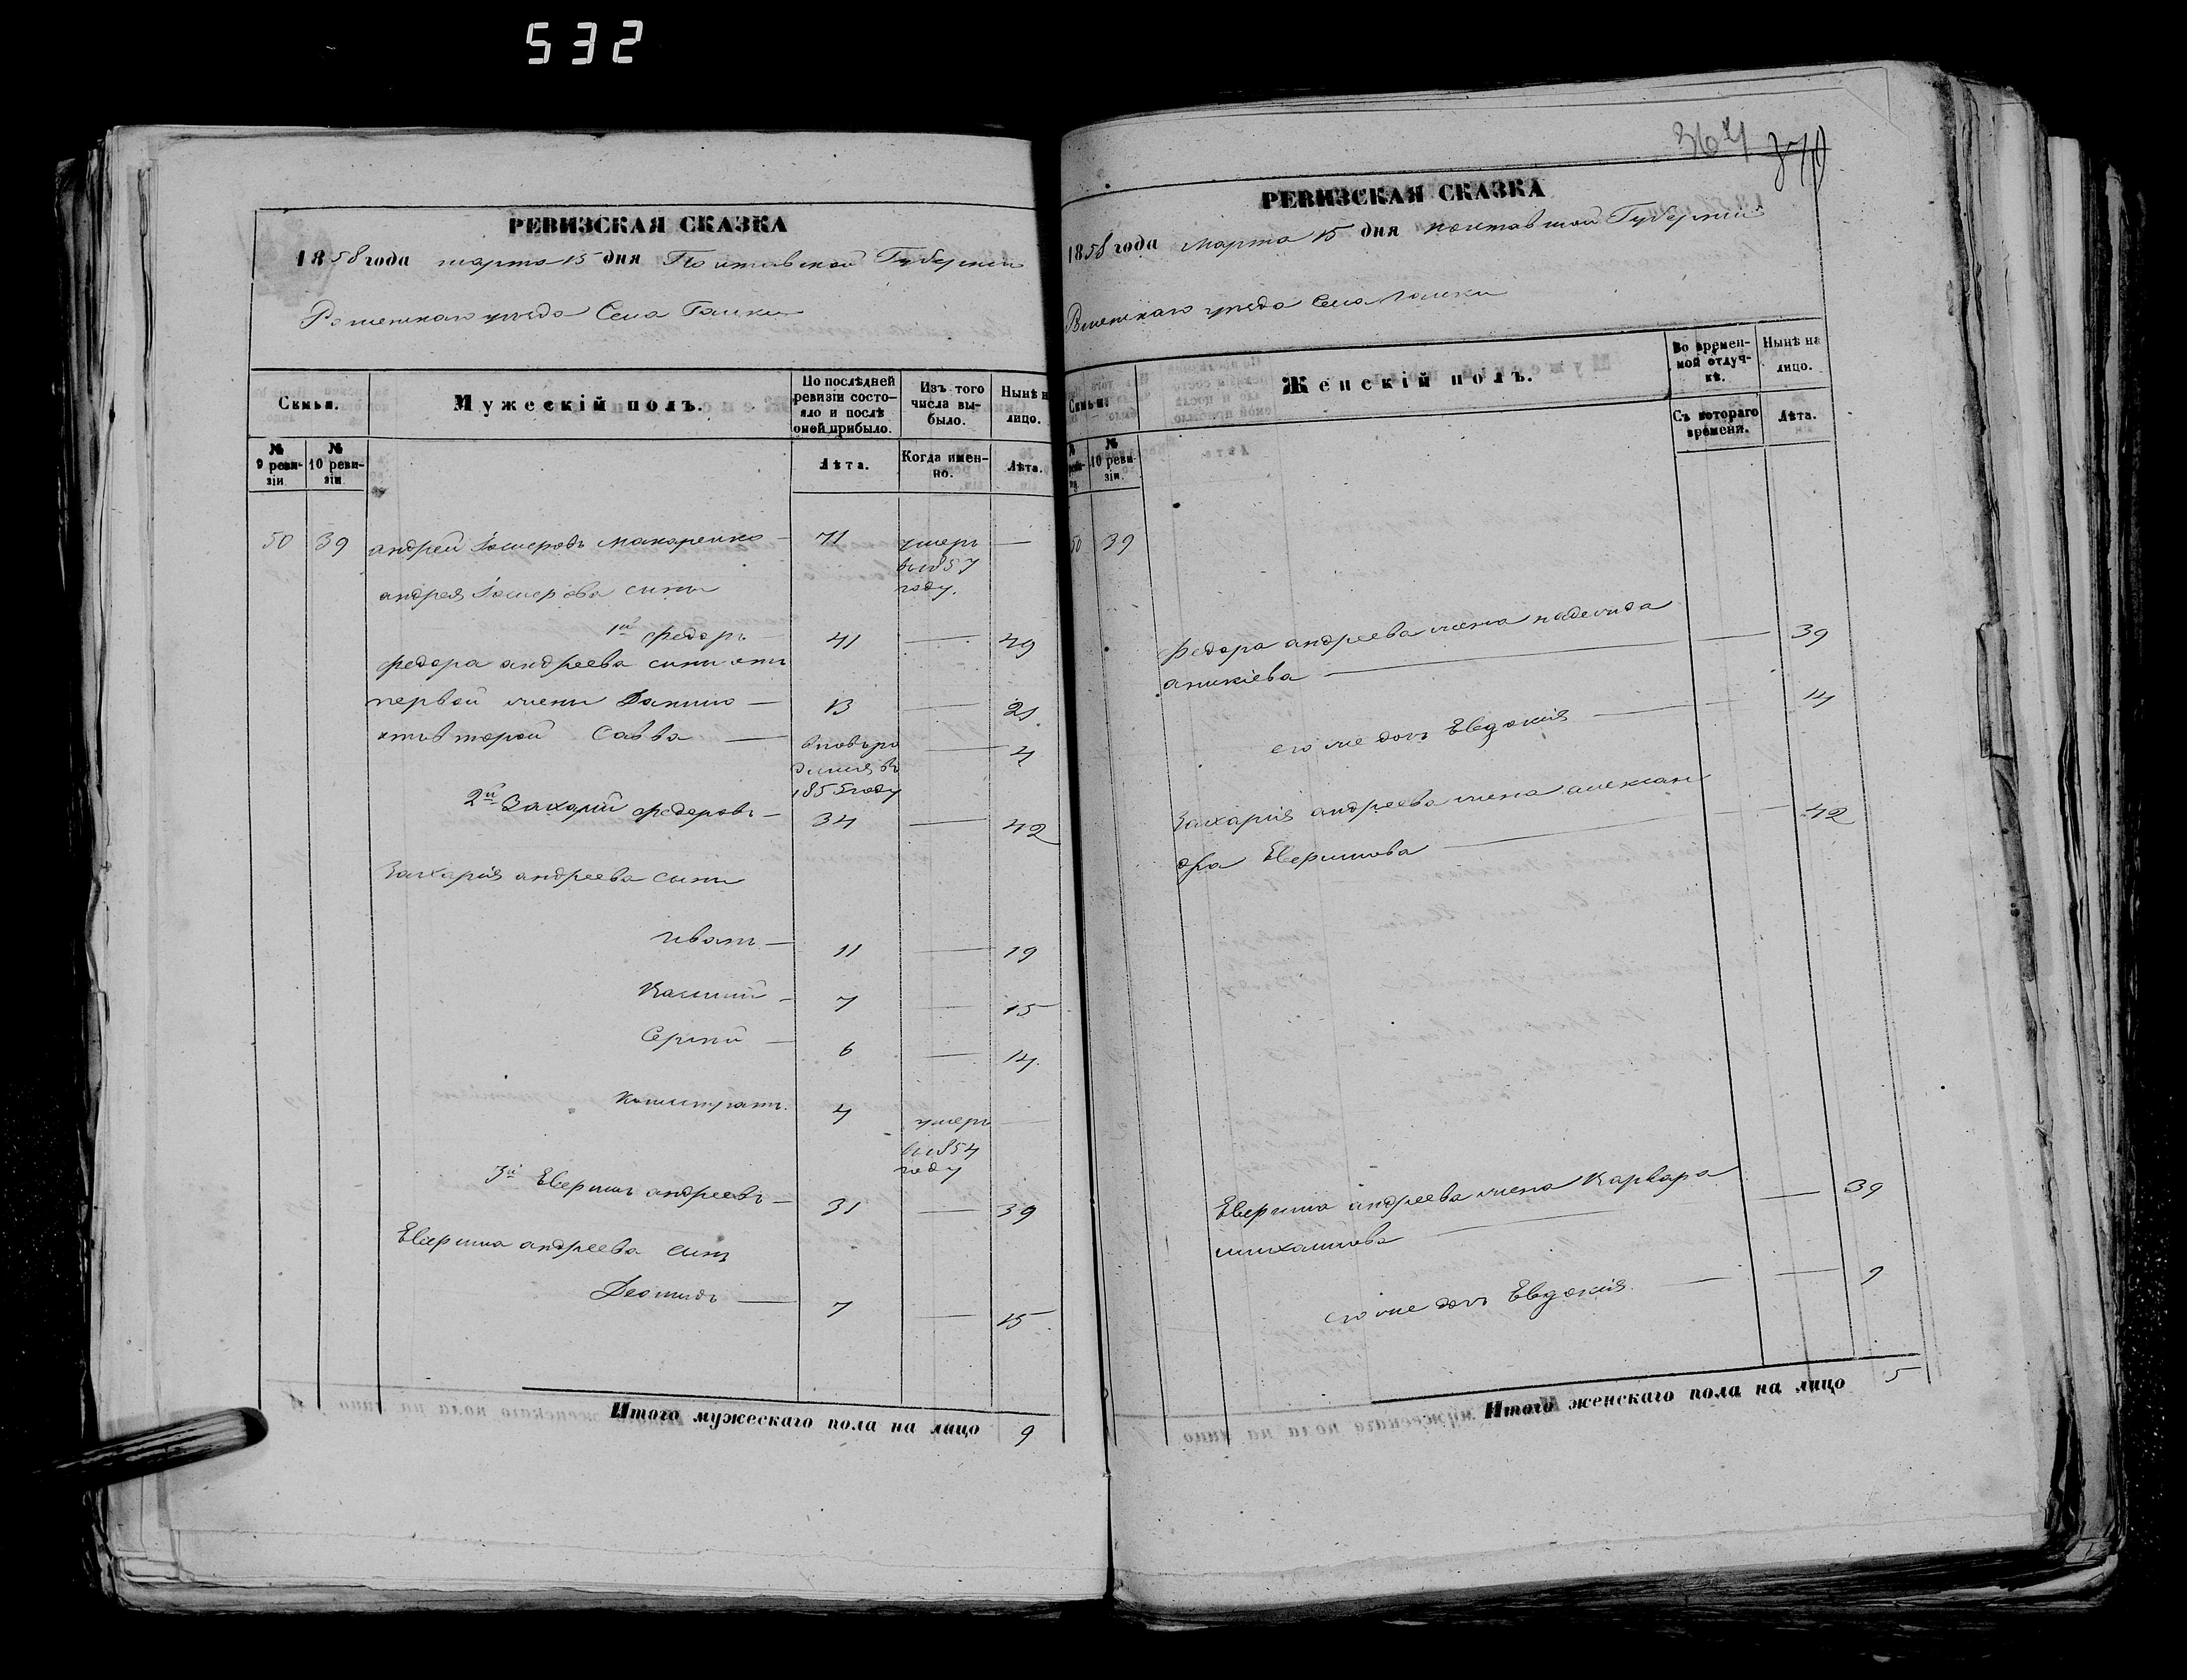 532
РЕВИЗСКАЯ СКАЗКА
1858 года марта 15 дня Полтавской Губерніи
Роменскаго уезда Села
Семьи.
Мужескій полъ.
По послѣдней ревизіи состояло и послѣ оной прибыло.
Изъ того числа выбыло.
Нынѣ н лицо.
№ 9 ревизіи
№ 10 ревизіи
Лѣта.
Когда именно.
Лѣта.
50 39 андрей Макаренко — 71 умеръ —
въ 1857
андрея сыны году.
1й федоръ 41 — 49
федора андреева сыны отъ
первой жены Данило — 13 — 21
отъ второй Савва — вновь ро — 4
дился въ
1855 году
2й Захарій федоровъ — 34 — 42
Захарія андреева сыны
Иванъ — 11 — 19
7 — 15
Сергий — 6 — 14
4 умеръ —
въ 1854
году
3й андреевъ — 31 — 39
андреева сынъ
Леонидъ — 7 — 15
Итого мужескаго пола на лицо 9
364 370
РЕВИЗСКАЯ СКАЗКА
1858 года марта 15 дня полтавской Губерніи
Роменскаго уезда Села
Семьи.
Женскій полъ.
Во временной отлучкѣ.
Нынѣ на лицо.
№ 10 ревизіи.
Съ котораго времени.
Лѣта.
50 39
федора андреева жена надежда
аникіева — — 39
его же дочь Евдокия — 14
Захария андреева жена алексан
дра — — 42
андреева жена Варвара — 39
михайлова —
его же дочь Евдокия — — 9
Итого женскаго пола на лицо 5